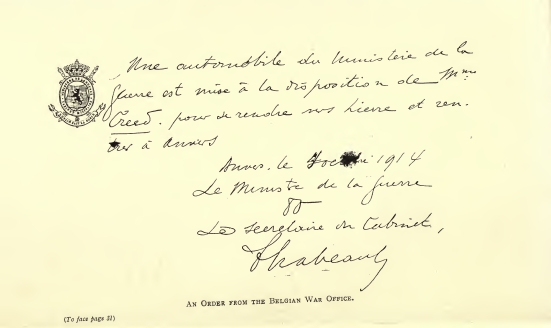 Une automobile du Ministère de la
guerre est mise à la disposition de Mme
Creed. pour se rendre vers Lierre et ren-
trer à Anvers
Anvers, le 1914
Le Ministre de la guerre
Le secrétaire du Cabinet,
AN ORDER FROM THE BELGIAN WAR OFFICE.
(To face page 31)